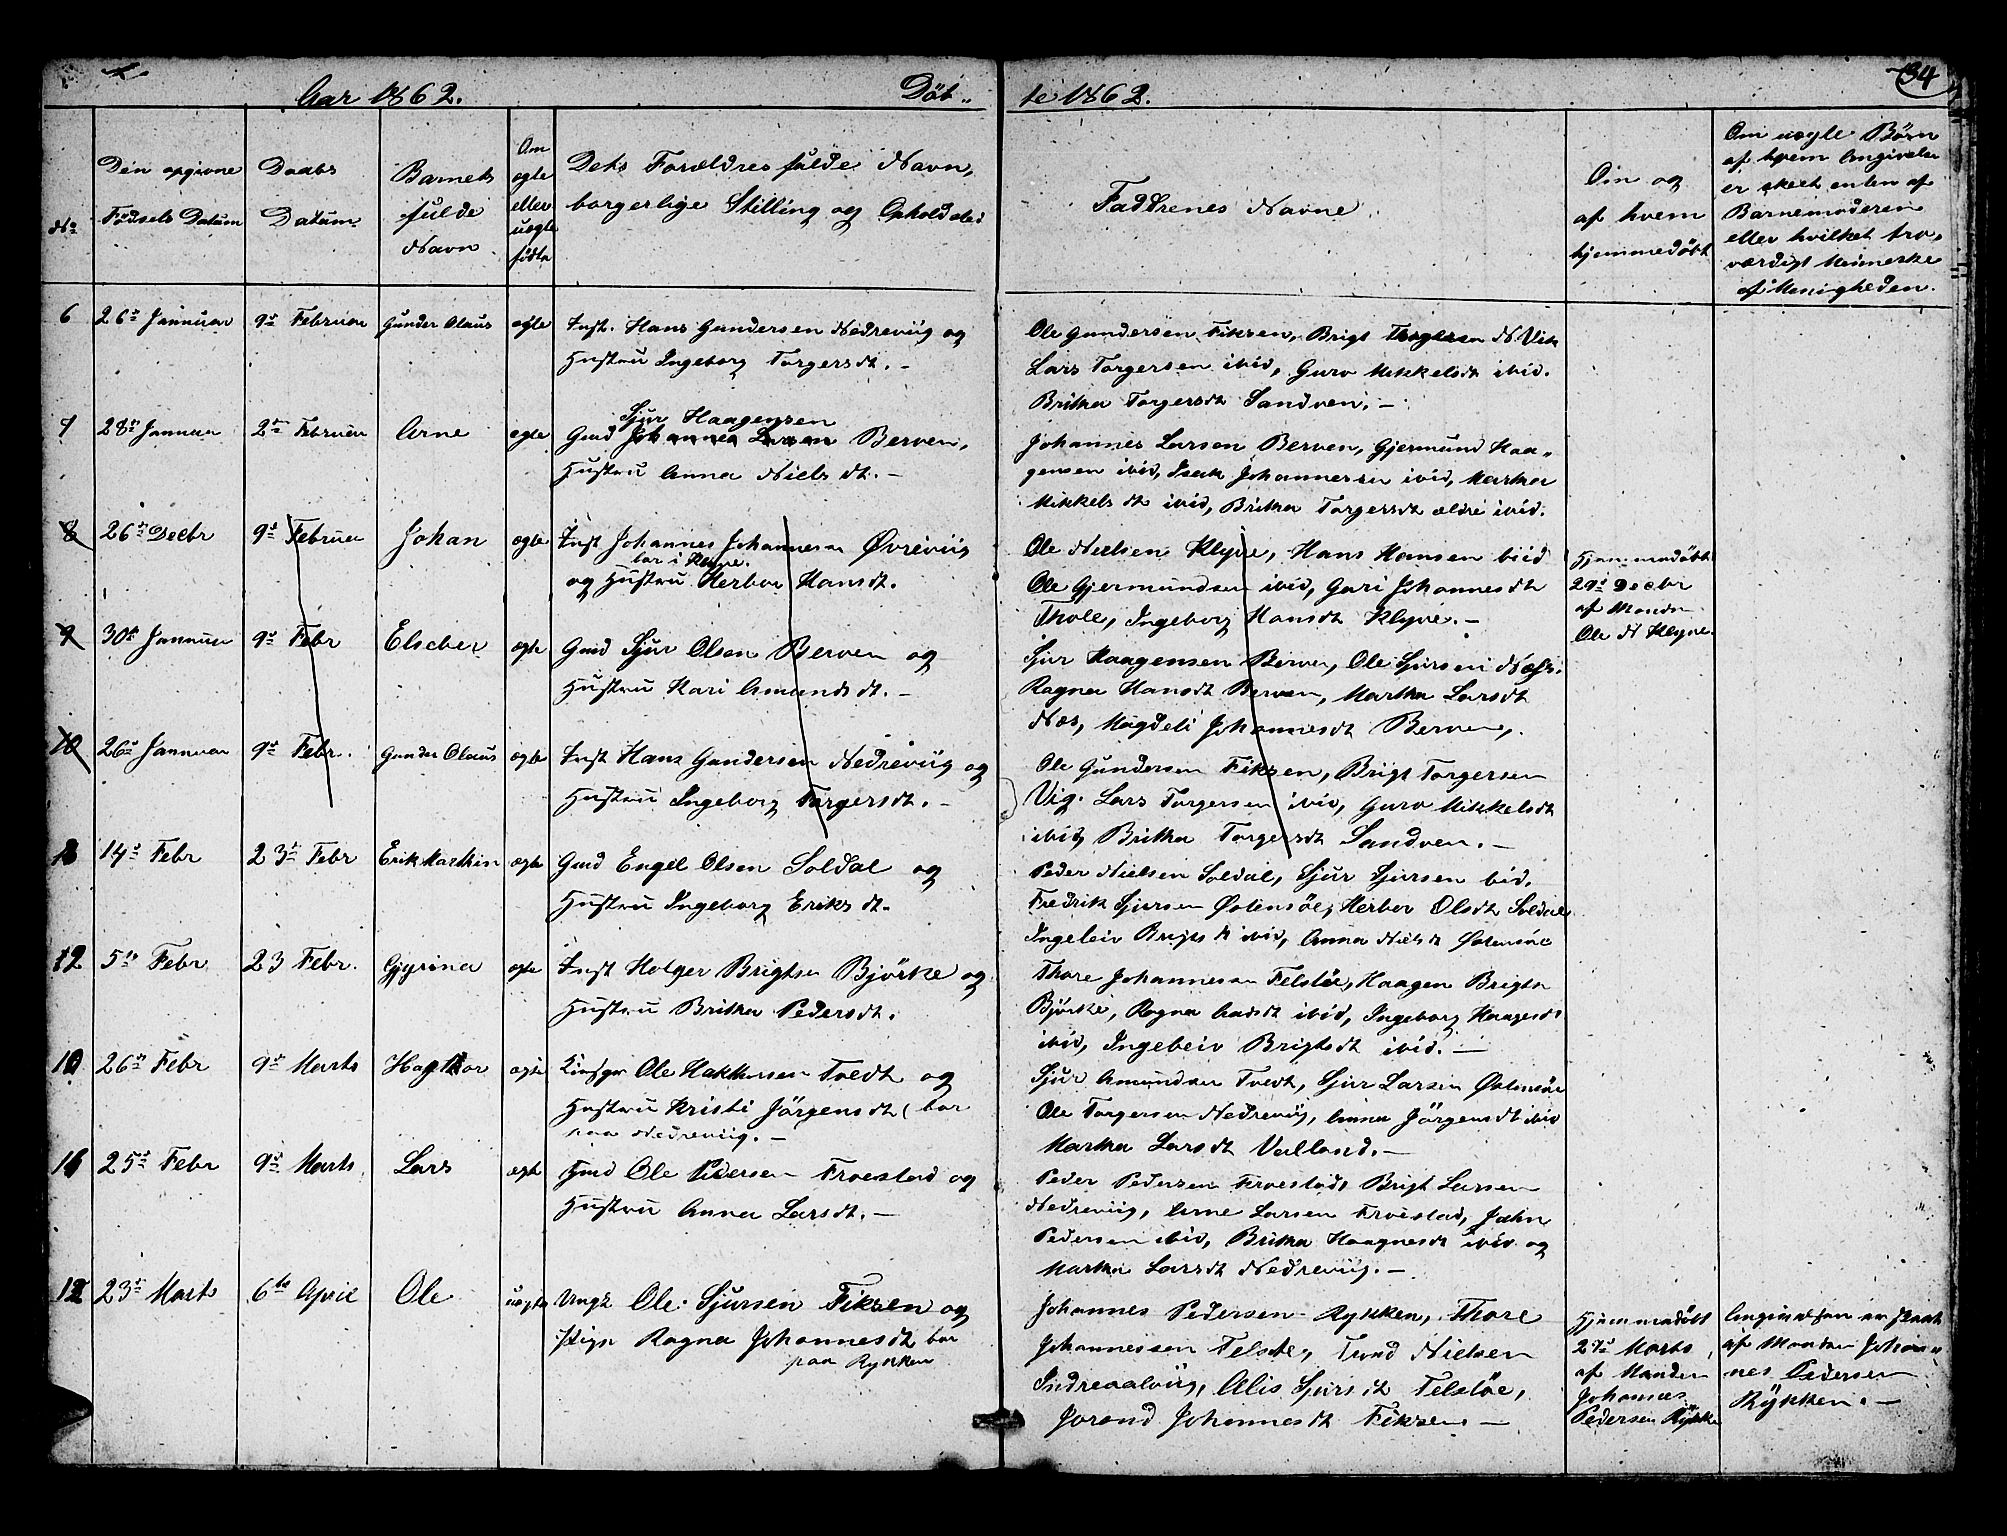 Aar 1862. Döb-
te 1862. 34
No
Den opgivne
Födsels Datum
Daabs
Datum
Barnets
fulde
Navn
Om
ægte
eller
uægte
födte
Dets Forældres fulde Navn,
borgerlige Stilling og Opholdsted
Faddrenes Navne.
Om og
af hvem
hjemmedöbt
Om uægte Börn
af hvem Angivelse
er skeet enten af
Barnemoderen
eller hvilket tro-
værdigt Menneske
af Menigheden.
6 26de Januar 9de Februar Gunder Olaus ægte Inst. Hans Gundersen Nedreviig og
Hustru Ingeborg Torgersdt. -
Ole Gundersen Fiksen, Brigt Torgersen N Vik
Lars Torgersen ibid, Guro Mikkelsdt ibid.
Britha Torgersdt Sandven. -
7 28de Januar 2den Februar Arne ægte Gmd Sjur Haagensen Berven,
Hustru Anna Nielsdt. -
Johannes Larsen Berven, Gjermund Haa-
gensen ibid, Isak Johannesen ibid, Martha
Mikkelsdt ibid, Britha Torgersdt ældre ibid.
8 26de Decbr 9de Februar Johan ægte Inst Johannes Johannesen Övreviig
bor i Klyve.
og Hustru Herbor Hansdt.
Ole Nielsen Klyve, Hans Hansen ibid
Ole Gjermundsen ibid, Guri Johannesdt
Thole, Ingeborg Hansdt Klyve. -
Hjemmedöbt
29de Decbr
af Manden
Ole N Klyve.
9 30te Januar 9de Febr Elseber ægte Gmd Sjur Olsen Berven og
Hustru Kari Amundsdt. -
Sjur Haagensen Berven, Ole Sjursen Næs.
Ragna Hansdt Berven, Martha Larsdt
Næs, Magdeli Johannesdt Berven.
10 26de Januar 9de Febr. Gunder Olaus ægte Inst Hans Gundersen Nedreviig og
Hustru Ingeborg Torgersdt. -
Ole Gundersen Fiksen, Brigt Torgersen
Vig. Lars Torgersen ibid, Guro Mikkelsdt
ibid, Britha Torgersdt Sandven. -
14de Febr 23de Febr Erik Marthin ægte Gmd Engel Olsen Soldal og
Hustru Ingeborg Eriksdt.
Peder Nielsen Soldal, Sjur Sjursen ibid.
Fredrik Sjursen Östensöe, Herbor Olsdt Soldal
Ingeleiv Brigtsdt ibid, Anna Nielsdt Östensöe
5te Febr 23 Febr. Gjyrina ægte Inst Holger Brigtsen Björke og
Hustru Britha Pedersdt.
Thore Johannesen Felstöe, Haagen Brigtsen
Björke, Ragna ibid, Ingeborg Haagensdt
ibid, Ingeleiv Brigtsdt ibid. -
10 26de Febr 9de Marts Hagthor ægte Ole Tvedt og
Hustru Kristi Jörgensdt (bor
paa Nedreviig. -
Sjur Amundsen Tvedt, Sjur Larsen Östensöe
Ole Torgersen Nedreviig, Anna Jörgensdt ibid
Martha Larsdt Valland. -
25de Febr 9de Marts. Lars ægte Gmd Ole Pedersen Froestad og
Hustru Anna Larsdt. -
Peder Pedersen Froestad, Brigt Larsen
Nedreviig, Arne Larsen Froestad, John
Pedersen ibid, Britha Haagnesdt ibid og
Martha Larsdt Nedreviig. -
12 23de Marts 6te April Ole uægte Ungk Ole Sjursen Fiksen og
Pige Ragna Johannesdt bor
paa Rykken
Johannes Pedersen Rykken, Thore
Johannessen Felstöe, Trond Nielsen
Indreaalviig, Alis Sjursdt Felstöe,
Jorand Johannesdt Fiksen. -
Hjemmedöbt
27de Marts
af Manden
Johannes
Pedersen Rykken
Angivelsen er skeet
af Manden Johan-
nes Pedersen
Rykken. -